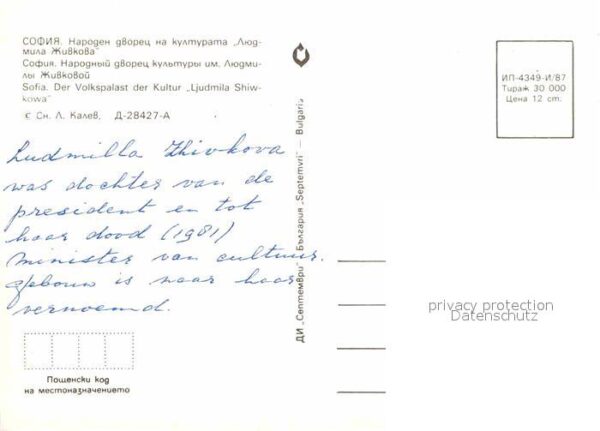 СОФИЯ. Народен дворец на културата „Люд-
мила Живкова“
София. Народный дворец культуры им. Людми-
лы Живковой
Sofia. Der Volkspalast der Kultur „Ljudmila Shiw-
kowa“
© Сн. Л. Калев, Д-28427-А
Ludmilla Zhivkova
was dochter van de
president en tot
haar dood (1981)
minister van cultuur.
gebouw is naar haar
vernoemd.
Пощенски код
на местоназначението
ДИ „Септември“ – България „Septemvri“ – Bulgaria
ИП-4349-И/87
Тираж 30 000
Цена 12 ст.
privacy protection
Datenschutz